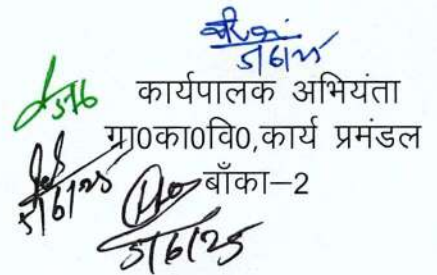 5/6/25
कार्यपालक अभियंता
ग्रा0का0वि0,कार्य प्रमंडल
बाँका–2
5/6/25
5/6/25